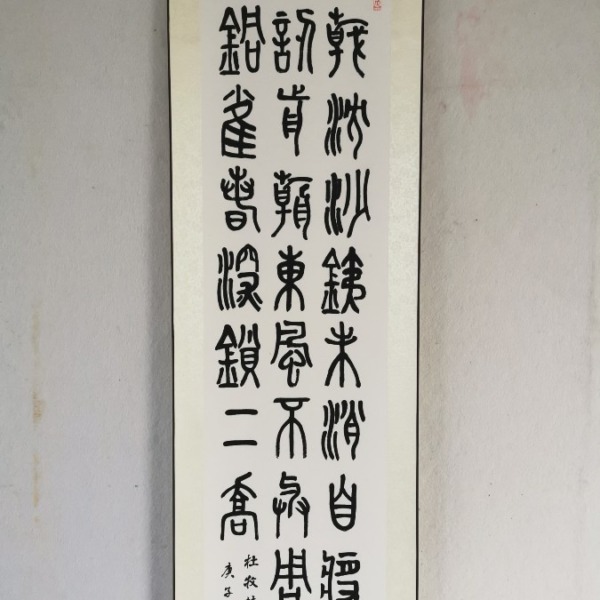 戟沈沙鐵未消自將
認前朝東風不與周
銅雀春深鎖二喬
杜牧
庚子